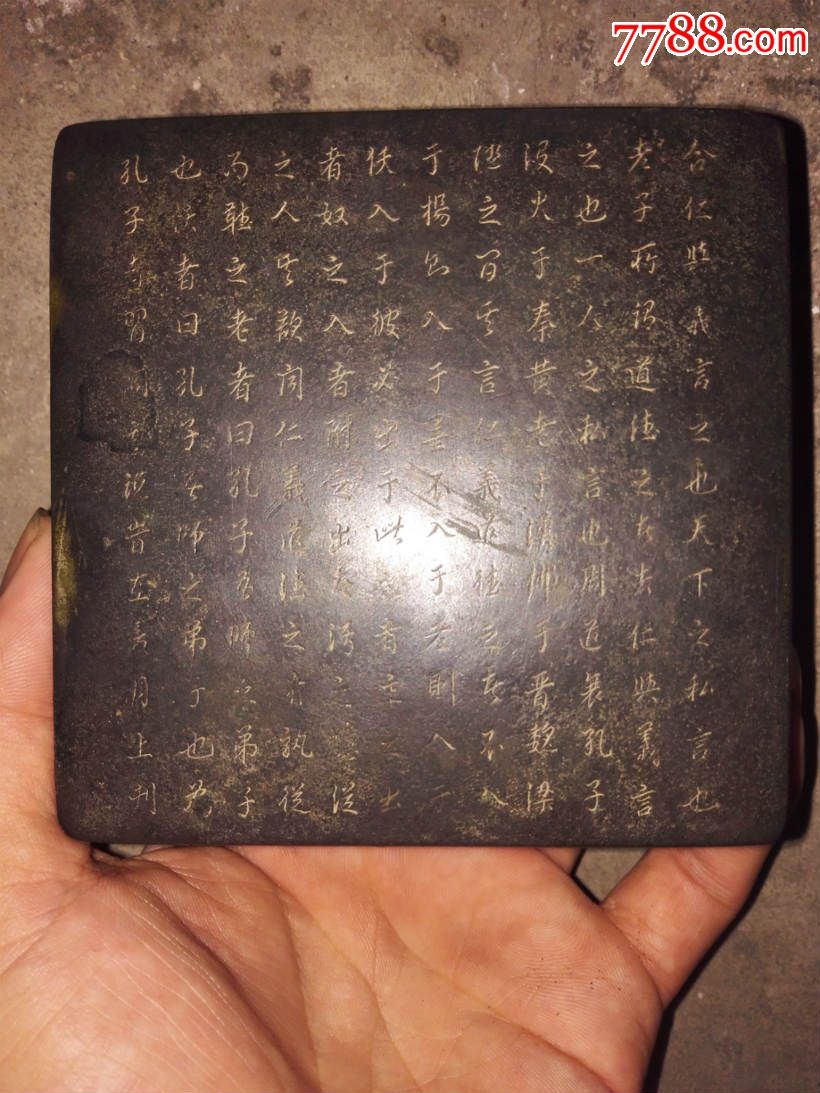 合仁與義言之也天下之私言也
老子所謂道德之云去仁與義言
之也一人之私言也周道衰孔子
沒火于秦黃老于漢佛于晉魏梁
隋之間其言仁義道德之者不入
于楊則入于墨不入于老則入于
佚入于彼必出于此入者主之出
者奴之入者附之出者污之從
之人其欲聞仁義道德之說孰從
而聽之老者曰孔子吾師之弟子
也佚者曰孔子吾師之弟子也為
孔子者習聞其說在月上刊
7788.com